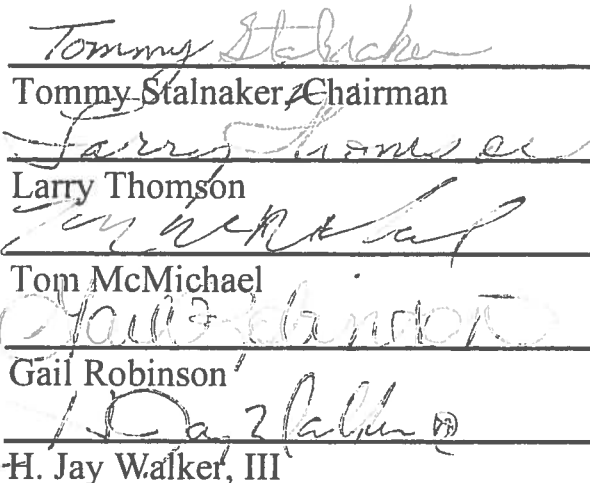 Tommy Stalnaker
Tommy Stalnaker, Chairman
Larry Thomson
Larry Thomson
Tom McMichael
Tom McMichael
Gail Robinson
Gail Robinson
H. Jay Walker
H. Jay Walker, III